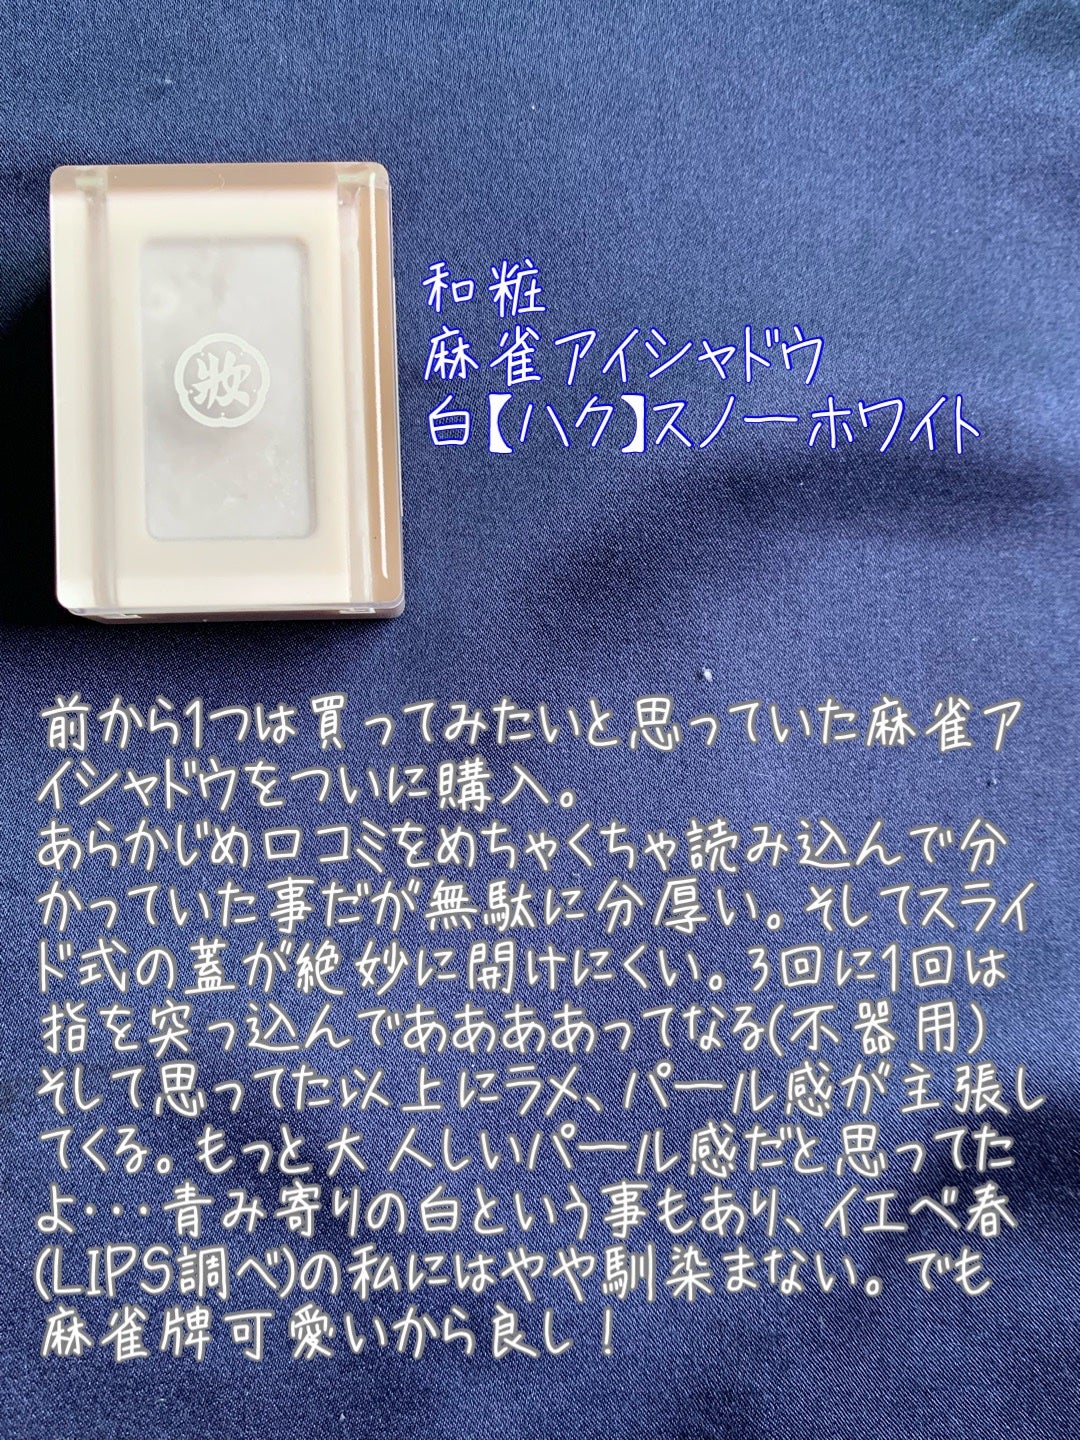 妝
和粧
麻雀アイシャドウ
白【ハク】スノーホワイト
前から1つは買ってみたいと思っていた麻雀ア
イシャドウをついに購入。
あらかじめ口コミをめちゃくちゃ読み込んで分
かっていた事だが無駄に分厚い。そしてスライ
ド式の蓋が絶妙に開けにくい。3回に1回は
指を突っ込んでああああってなる(不器用)
そして思ってた以上にラメ、パール感が主張し
てくる。もっと大人しいパール感だと思ってた
よ・・・青み寄りの白という事もあり、イエベ春
(LIPS調べ)の私にはやや馴染まない。でも
麻雀牌可愛いから良し！